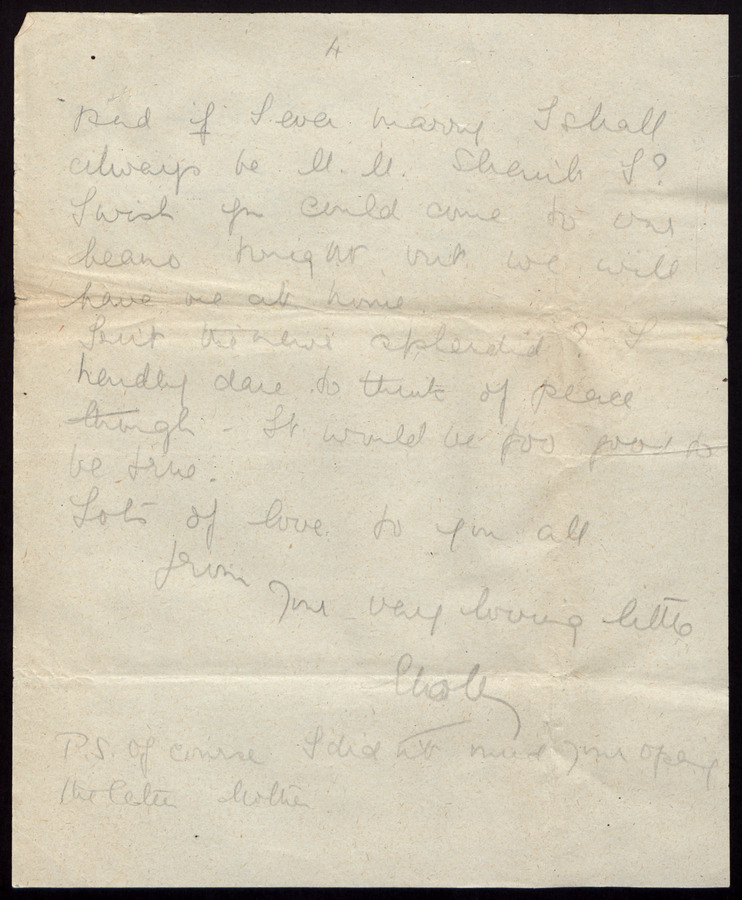 4
And if I ever marry I shall
always be M.M. Shan't I?
I wish you could come to our
beano tonight but we will
have one at home.
Isn't the news splendid? I
hardly dare to think of peace
though - It would be too good to
be true.
Lots of love to you all
from
Your very loving little
P.S. Of course I didn't mind your opening
the letter Mother